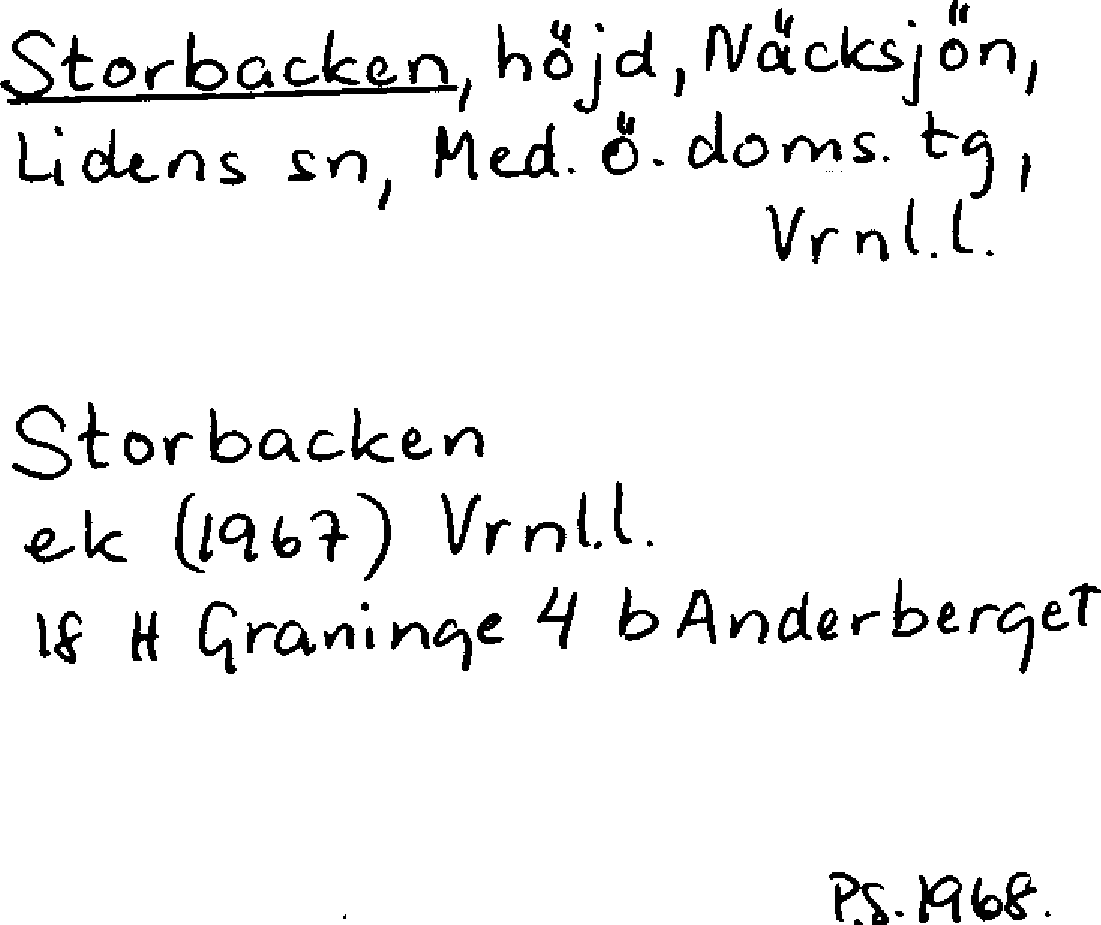 Storbacken, höjd, Näcksjön,
Lidens sn, Med. ö. doms. tg,
Vrnl.l.
Storbacken
ek (1967) Vrnl.l.
18 H Graninge 4 b Anderberget
P.S. 1968.